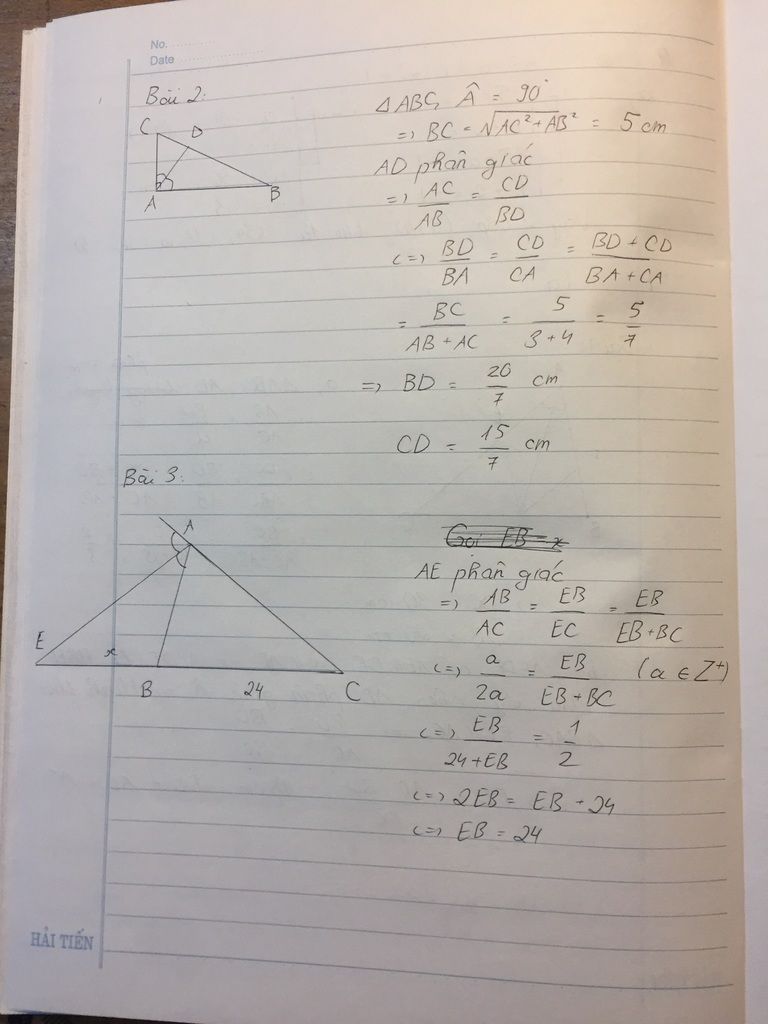 No.
Date
Bài 2:
C
D
A
B
△ABC, Â = 90°
=> BC = √AC² + AB² = 5 cm
AD phân giác
=> AC/AB = CD/BD
<=> BD/BA = CD/CA = BD + CD/BA + CA
= BC/AB + AC = 5/3 + 4 = 5/7
=> BD = 20/7 cm
CD = 15/7 cm
Bài 3:
A
E
x
B
24
C
Gọi EB = x
AE phân giác
=> AB/AC = EB/EC = EB/EB+BC
<=> a/2a = EB/EB + BC (a ∈ Z⁺)
<=> EB/24 + EB = 1/2
<=> 2EB = EB + 24
<=> EB = 24
HẢI TIẾN